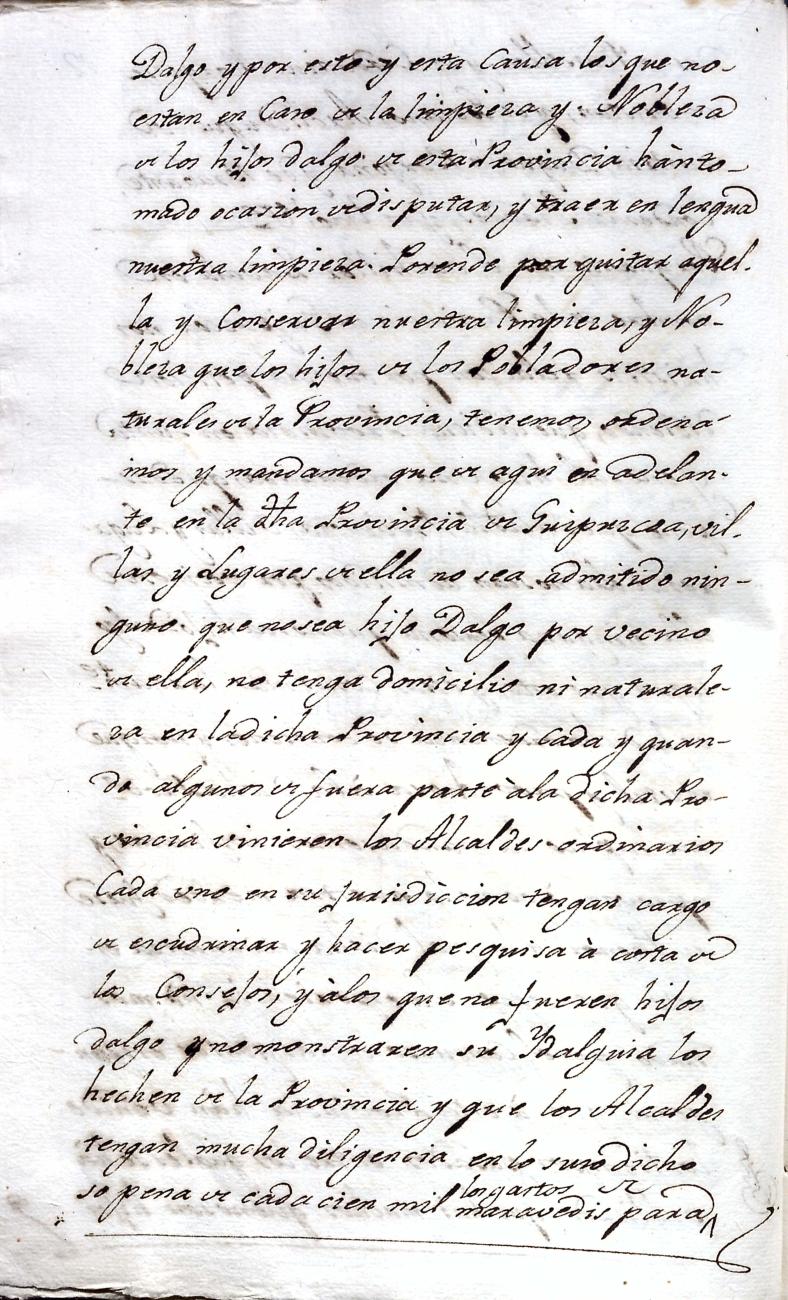 Dalgo y por esto y esta Causa los que no
estan en Caso de la limpieza y Nobleza
de los hijos dalgo de esta Provincia hanto-
mado ocasion dedisputar, y traer en lengua
nuestra limpieza. Porende por quitar aquel-
la y Conservar nuestra limpieza, y No-
bleza que los hijos de los Pobladores na-
turales de la Provincia, tenemos, ordena-
mos y mandamos que de aqui en adelan-
te en la dha Provincia de Guipuzcoa, vil-
las y Lugares de ella no sea admitido nin-
guno que no sea hijo Dalgo por vecino
de ella, no tenga domicilio ni naturale-
za en ladicha Provincia y cada y quan-
do algunos de fuera parte àla dicha Pro-
vincia vinieren los Alcaldes ordinarios
Cada uno en su Jurisdiccion tengan cargo
de escudrinar y hacer pesquisa à costa de
los Consejos, y àlos que no fueren hijos
dalgo y no monstraren su Ydalguia los
hechen de la Provincia y que los Alcaldes
tengan mucha diligencia en lo susodicho
so pena de cada cien mil maravedis para
los gastos de